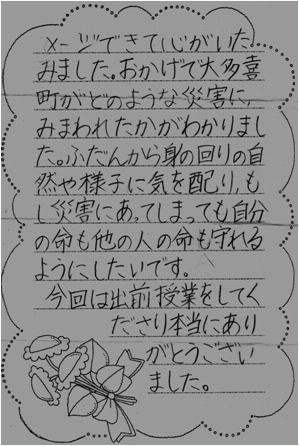 メージできて心がいた
みました。おかげで大多喜
町がどのような災害に、
みまわれたかがわかりまし
た。ふだんから身の回りの自
然や様子に気を配り、も
し災害にあってしまっても自分
の命も他の人の命も守れる
ようにしたいです。
今回は出前授業をしてく
ださり本当にあり
がとうござい
ました。